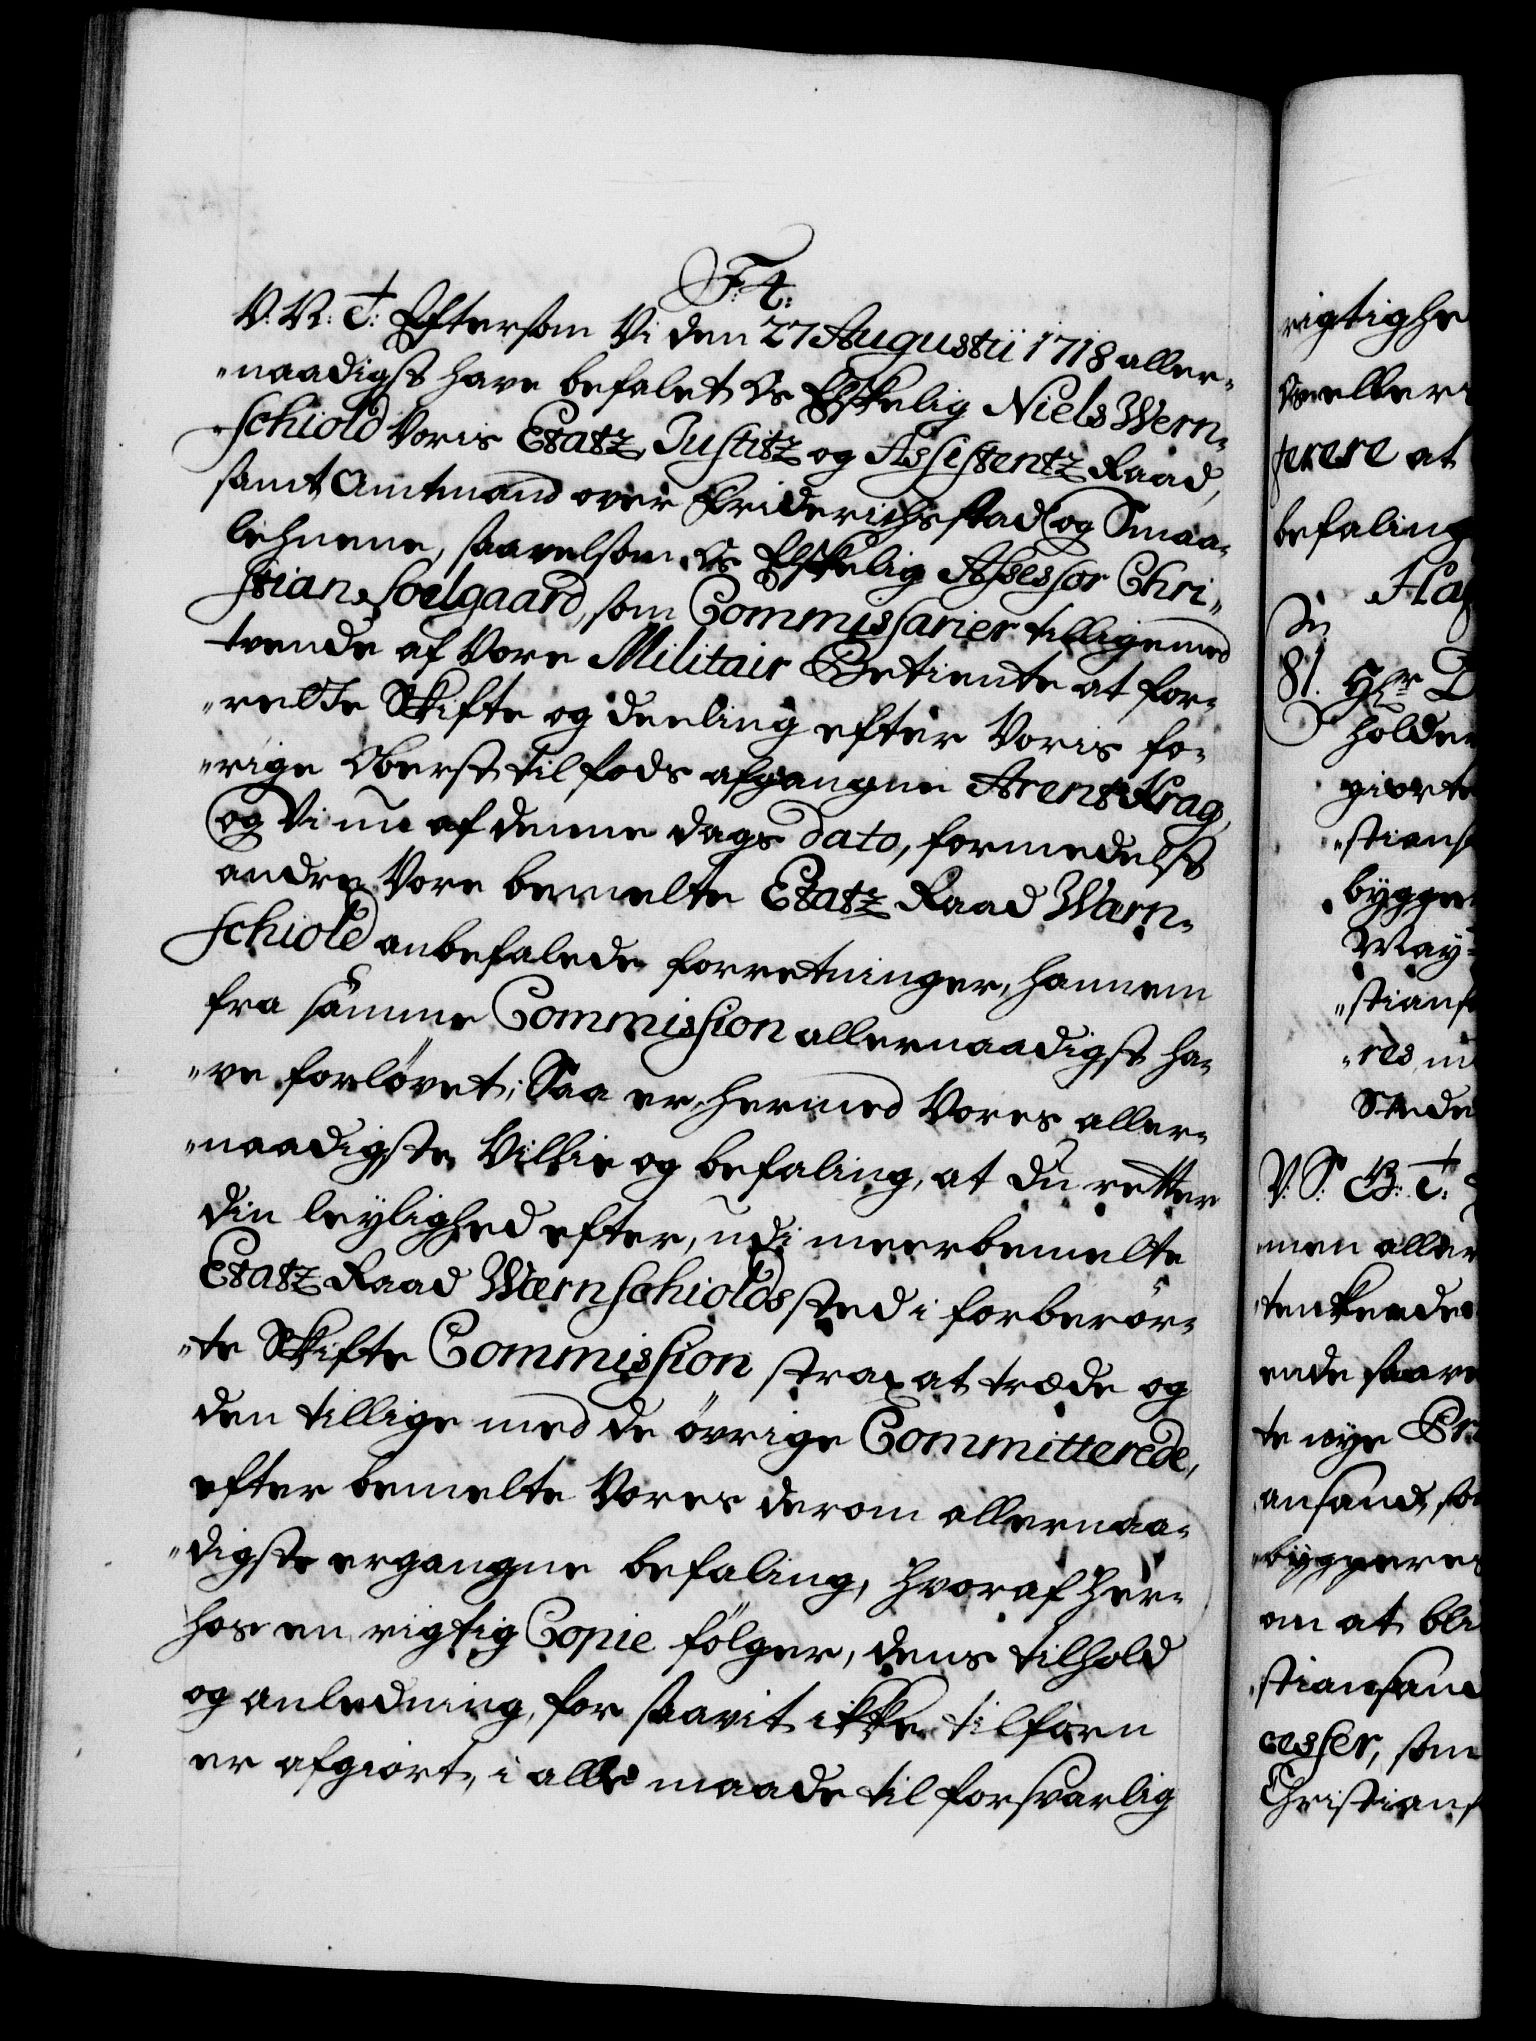 F: 4:
V: N: T: Eftersom Vi den 27 Augustii 1718 aller-
naadigst have befalet Os Elskelig Niels Wern-
schiold Voris Etatz, Justitz og Assistentz Raad,
samt Amtmand over Friderichsstad og Smaa-
lehnene, saavelsom Os Elskelig Assessor Chri-
stian Soelgaard, som Commissarier tilligemed
tvende af Vore Militair Betiente at for-
rette Skifte og deeling efter Voris fo-
rige Oberst til fods afgangne Arent Krag,
og Vi nu af denne dags dato, formedelst
andre Vore bemelte Etatz Raad Wern-
schiold anbefalede forretninger, hannem
fra samme Commission allernaadigst ha-
ve forlövet; Saa er hermed Vores aller-
naadigste Villie og befaling, at du retter
din leylighed efter, udi meerbemelte
Etatz Raad Wernschiolds sted i forberör-
te Skifte Commission strax at træde og
den tillige med de övrige Committerede,
efter bemelte Vores derom allernaa-
digste ergangne befaling, hvoraf her-
hos en rigtig Copie fölger, dens tilhold
og anledning, for saavit ikke tilforn
er afgiort, i alle maade til forsvarlig
rigtighe
terere at
befaling
81. Hr D
holder
giorte
stians
bygge
May
stians
res
Stede
V: S: B: T:
men aller
tenkende
ende saave
te nye Pr
ansand, so
byggere
om at bli
stiansand
cesser, som
Christians